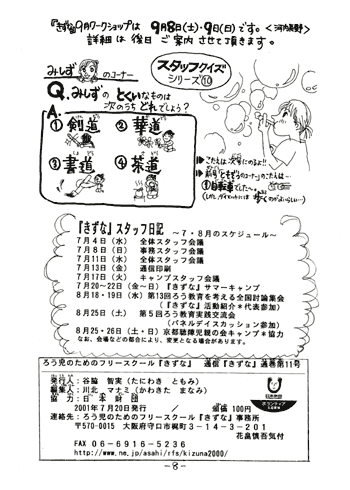 『きずな』9月ワークショップは 9月8日(土)・9日(日)です。<河内長野>
詳細は後日ご案内させて頂きます。
みしずのコーナー
スタッフクイズ
シリーズ⑩
Q.みしずの とくいなものは
次のうち どれでしょう?
A.
①剣道 ②華道
③書道 ④茶道
こたえは次号にのるよ!!
①自転車でした〜。
『きずな』スタッフ日記 〜7・8月のスケジュール〜
7月4日(水) 全体スタッフ会議
7月8日(日) 事務スタッフ会議
7月11日(水) 全体スタッフ会議
7月13日(金) 通信印刷
7月17日(火) キャンプスタッフ会議
7月20〜22日(金〜日)『きずな』サマーキャンプ
8月18・19日(水) 第13回ろう教育を考える全国討論集会
(『きずな』活動紹介*代表参加)
8月25日(土) 第5回ろう教育実践交流会
(パネルデイスカッション参加)
8月25・26日(土・日) 京都聴障児親の会キャンプ*協力
なお、会場などの都合により、変更となる場合があります。
ろう児のためのフリースクール『きずな』 通信『きずな』通巻第11号
発行人:谷脇 智実(たにわき ともみ)
編集人:川北 マナミ(かわきた まなみ)
協力:日本財団
2001年7月20日発行 / 価格 100円
連絡先:ろう児のためのフリースクール『きずな』事務所
〒570-0015 大阪府守口市梶町3-14-3-201
花畠慎吾気付
FAX 06-6916-5236
http://www.ne.jp/asahi/rfs/kizuna2000/
日本財団
ボランティア
-8-